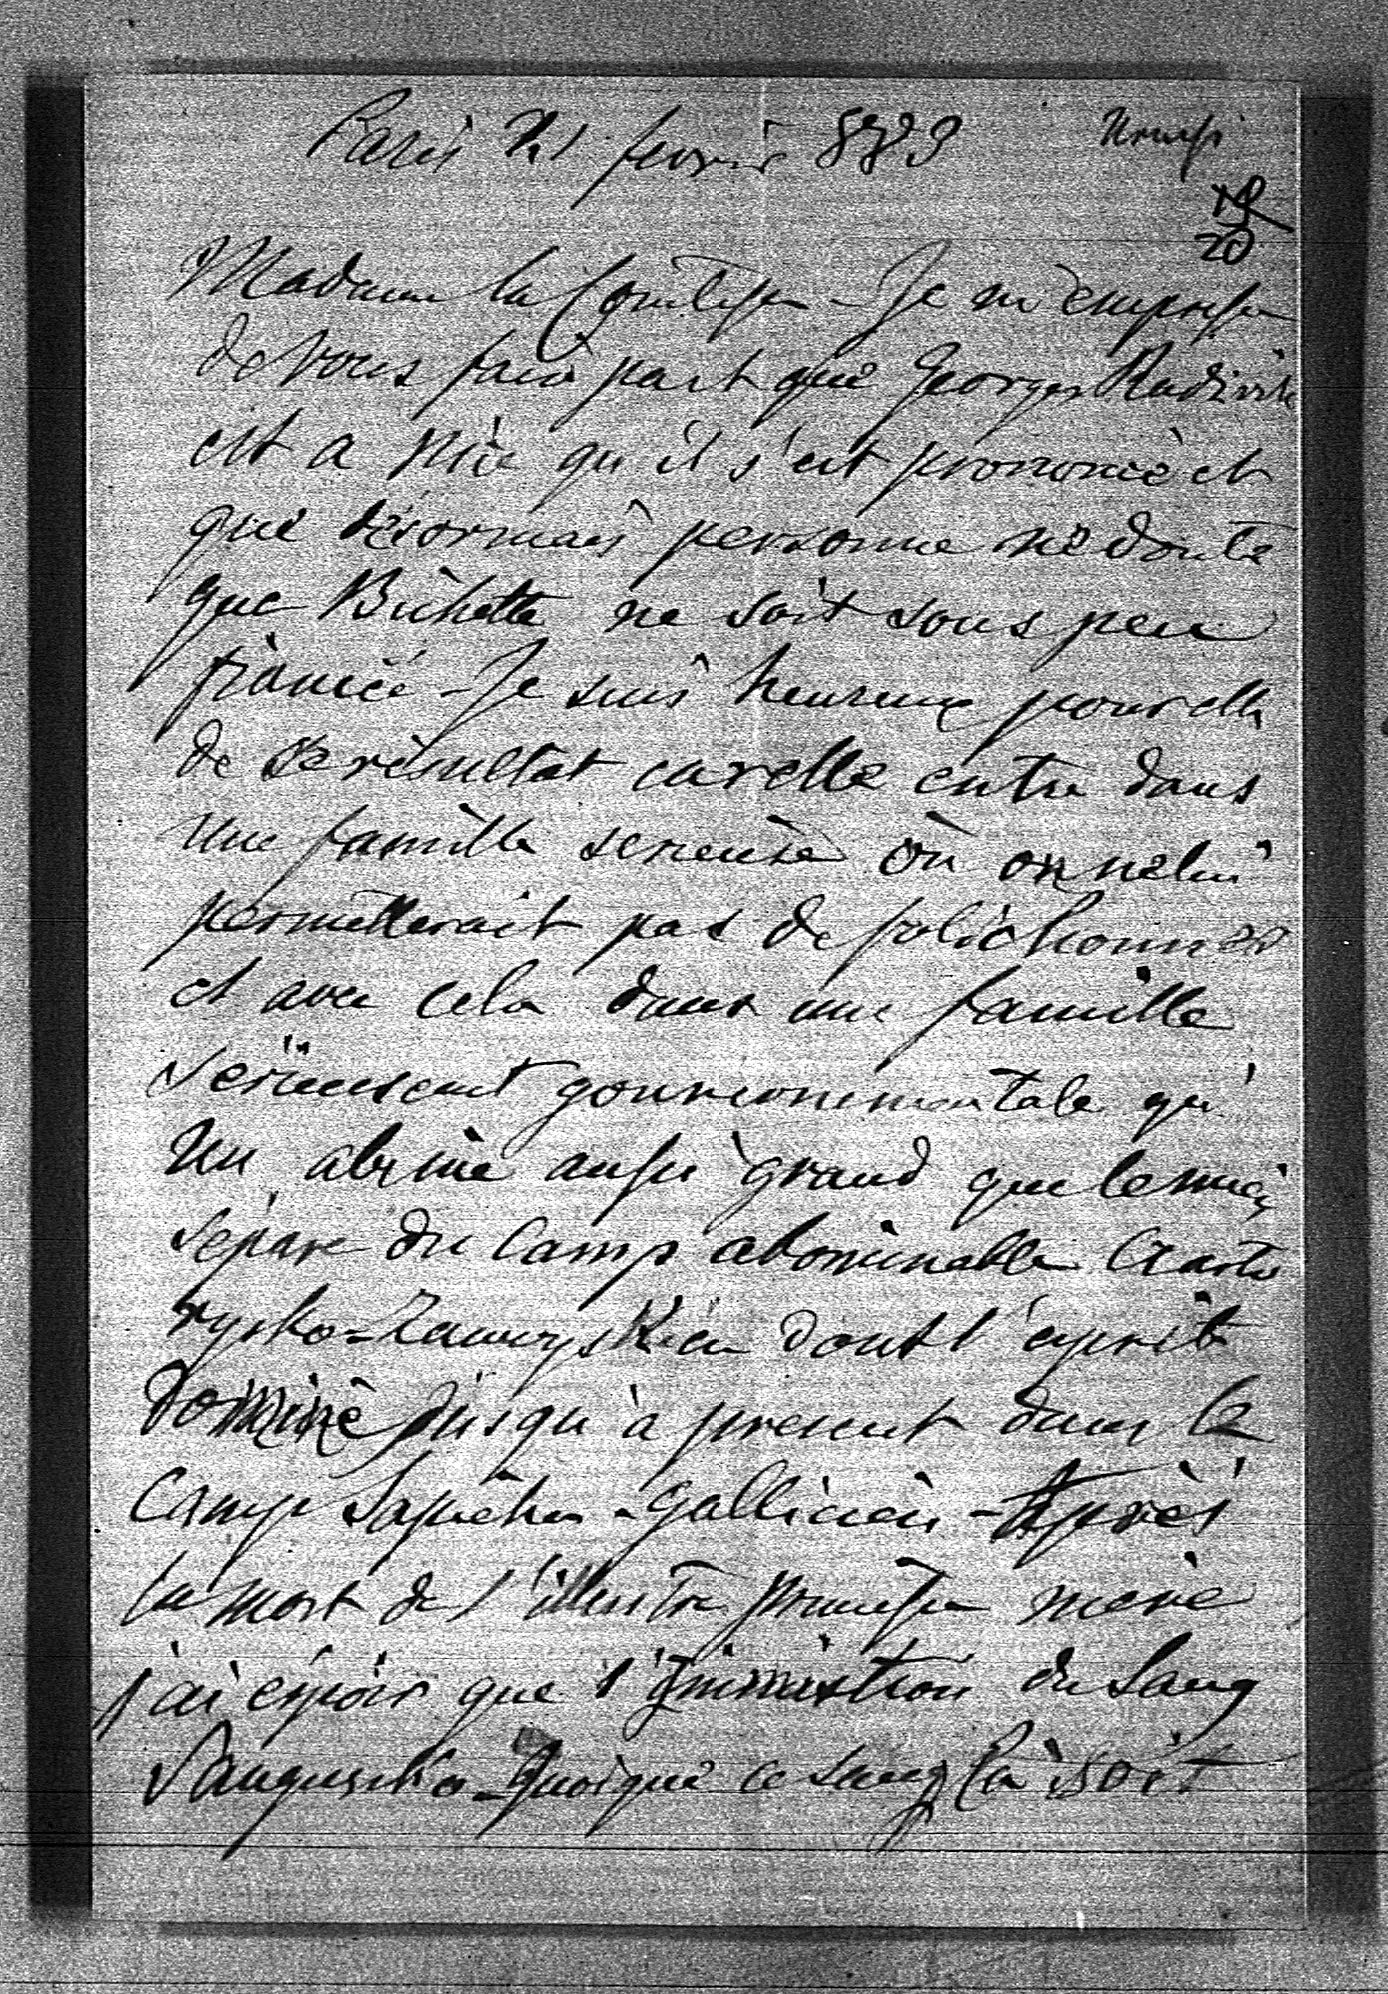 Paris 21 fevrie 883
19
20
Madame la Comtesse - Je m'empresse
de vous faire part que Georges Radziwil
est a Nice qu'il s'est prononcé et
que désormais personne ne doute
que Bichette ne soit sous peu
fiancée - Je suis heureux pour elle
de ce résultat car elle entre dans
une famille serieuse où on ne lui
permetterait pas de folichonner
et avec cela dans une famille
serieusement gouvernementale qu'
un abime aussi grand que le mien
separe du camp abominable Czarto
rysko-Zamoyskien dont l'esprit
domine jusqu'à present dans le
camp Sapieha-Gallicien - Après
la mort de l'illustre Princesse mère
j'ai espoir que l'immixtion du sang
Sangusko - quoique ce sang là soit